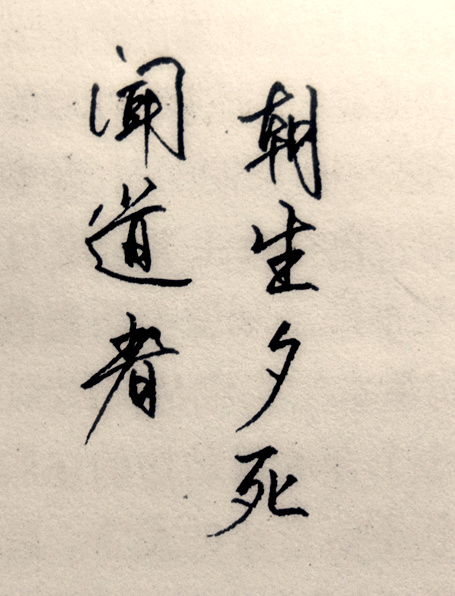 朝生夕死
闻道者